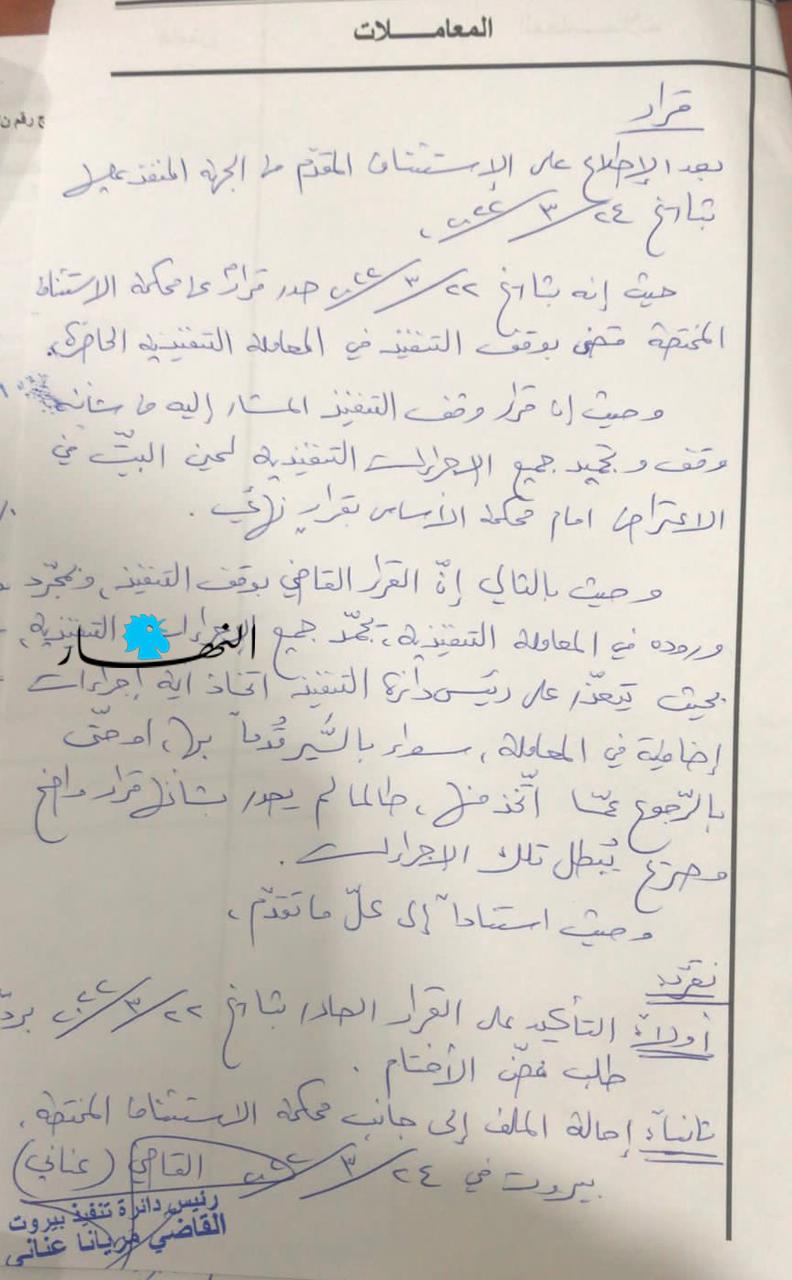 المعاملات
ج رقم
قرار
بعد الإطلاع على الإستئناف المقدّم من الجهة المنفذ عليها
بتاريخ ٢٤/٣/٢٠٢٢،
حيث إنه بتاريخ ٢٢/٣/٢٠٢٢ صدر قرارٌ عن محكمة الاستئناف
المختصة قضى بوقف التنفيذ في المعاملة التنفيذية الحاضرة،
وحيث إن قرار وقف التنفيذ المشار إليه من شأنه
وقف وتجميد جميع الاجراءات التنفيذية لحين البتّ في
الاعتراض امام محكمة الأساس بقرارٍ نهائي.
وحيث بالتالي إنّ القرار القاضي بوقف التنفيذ، وبمجرّد
وروده في المعاملة التنفيذية، تجمّد جميع الإجراءات التنفيذية،
النهار
بحيث يتعذّر على رئيس دائرة التنفيذ اتخاذ اية إجراءات
إضافية في المعاملة، سواء بالسَّير قُدماً بها، او حتّى
بالرّجوع عمّا اتّخذ منها، طالما لم يصدر بشأنها قرار واضح
وصريح يُبطل تلك الاجراءات.
وحيث استناداً إلى كلّ ما تقدّم،
نقرّر
أولاً: التأكيد على القرار الصادر بتاريخ ٢٢/٣/٢٠٢٢ بردّ
طلب فضّ الأختام.
ثانياً: إحالة الملف إلى جانب محكمة الاستئناف المختصة.
بيروت في ٢٤/٣/٢٠٢٢ القاضي (عناني)
رئيس دائرة تنفيذ بيروت
القاضي مريانا عناني